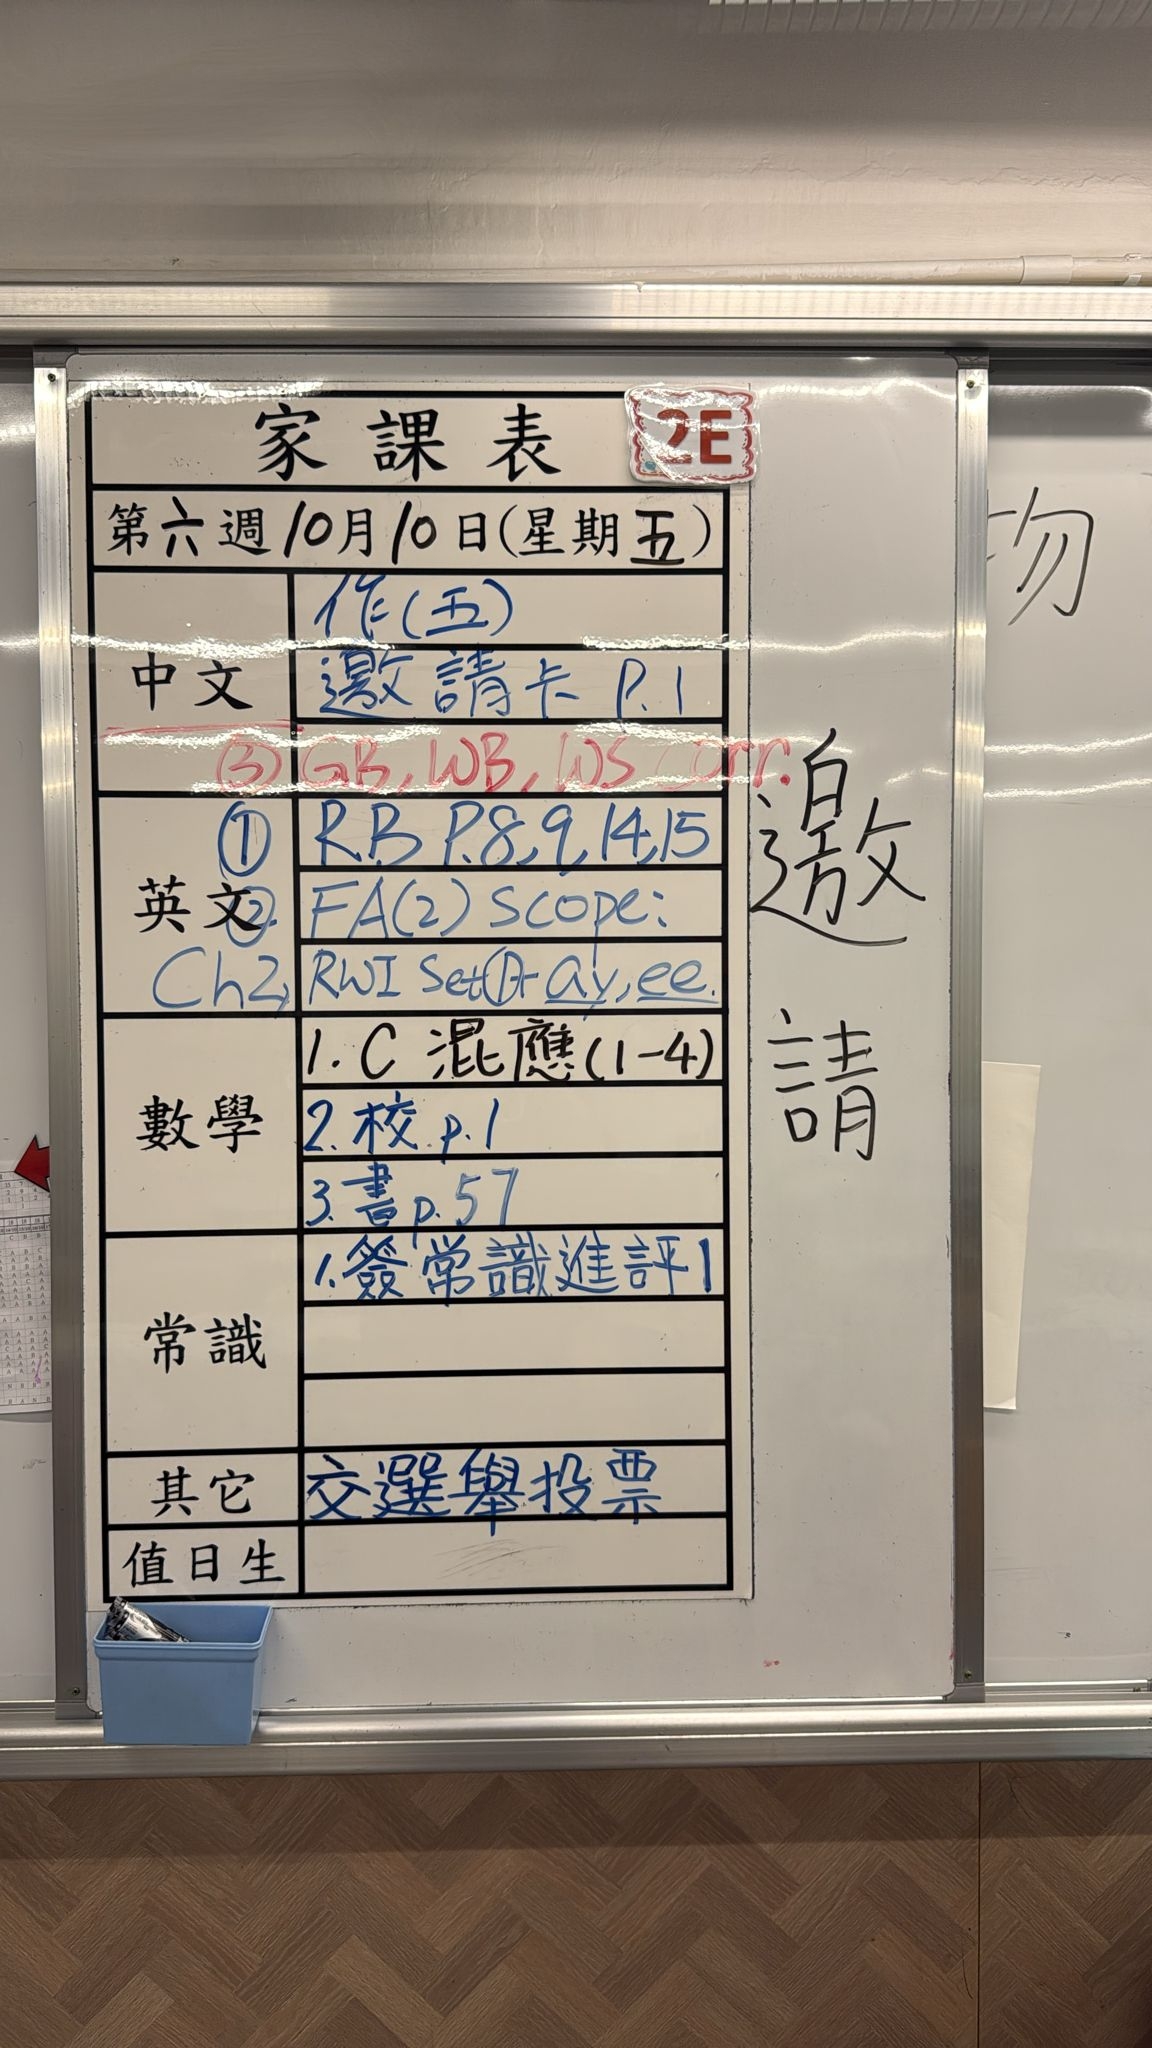 家課表 2E
第六週10月10日(星期五)
中文
作(五)
邀請卡 P.1
③ GB, WB, WS corr.
英文
① RB P.8,9,14,15
② FA(2) scope:
Ch2, RWI Set① - ay, ee.
數學
1. C 混應(1-4)
2. 校 p.1
3. 書 p.57
常識
1. 簽常識進評1
其它
交選舉投票
值日生
邀
請
物